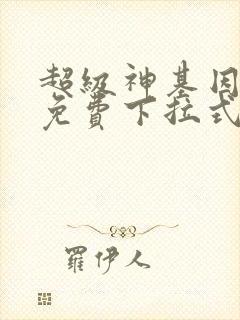 超级神基因
免费下拉式
羅伊人